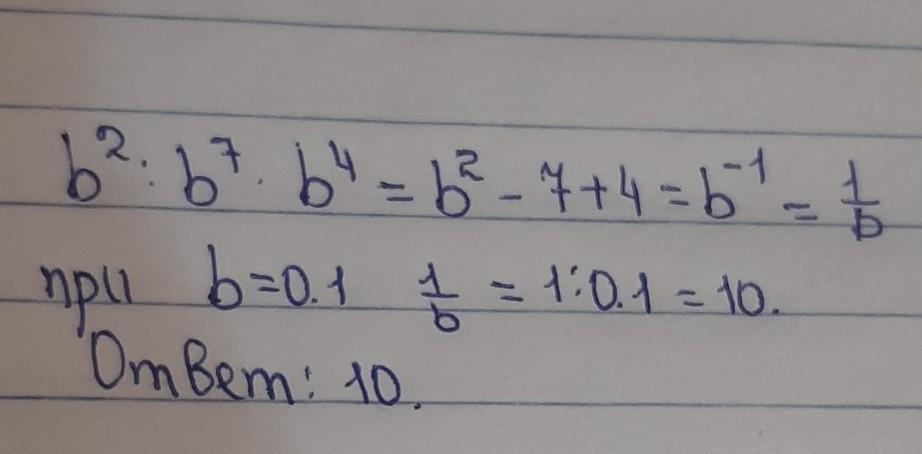 b² : b⁷ · b⁴ = b² - 7 + 4 = b⁻¹ = 1/b
при b = 0.1 1/b = 1 : 0.1 = 10.
Ответ: 10.